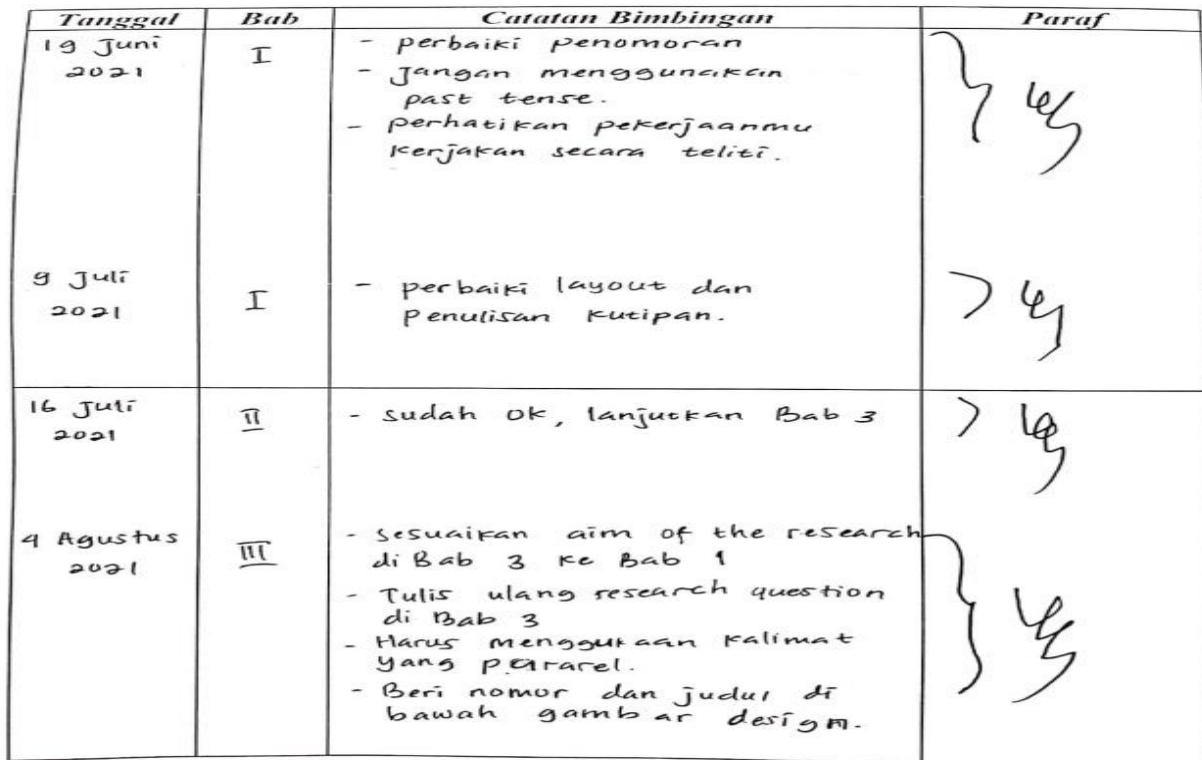 Tanggal Bab Catatan Bimbingan Paraf
19 Juni I - perbaiki penomoran
2021 - Jangan menggunakan
past tense.
- perhatikan pekerjaanmu
kerjakan secara teliti.
9 Juli I - perbaiki layout dan
2021 penulisan kutipan.
16 Juli II - sudah ok, lanjutkan Bab 3
2021
4 Agustus III - sesuaikan aim of the research
2021 di Bab 3 ke Bab 1
- Tulis ulang research question
di Bab 3
- Harus menggukaan kalimat
yang pararel.
- Beri nomor dan judul di
bawah gambar design.